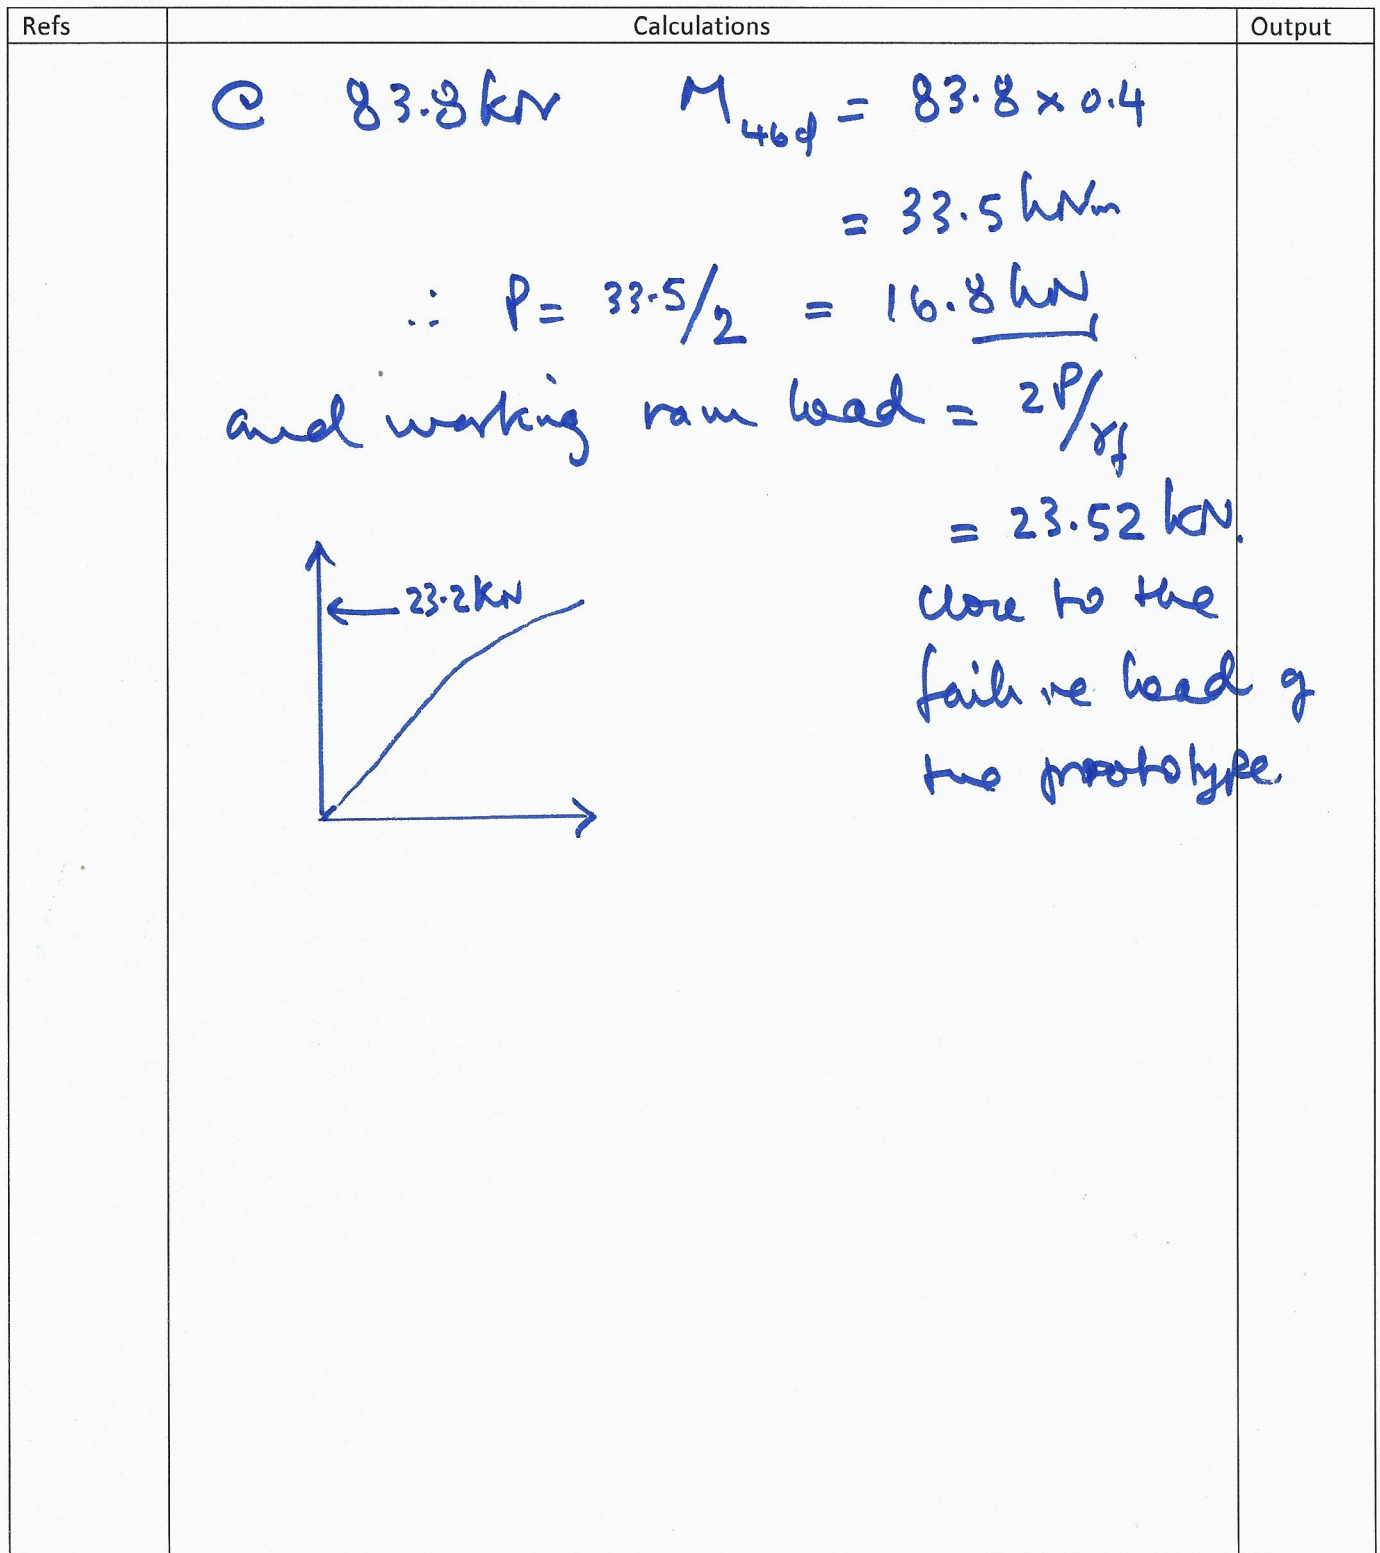 Refs Calculations Output
@ 83.8 kN M = 83.8 x 0.4
= 33.5 kNm
∴ P = 33.5/2 = 16.8 kN
and working ram load = 2P/γf
= 23.52 kN.
23.2 kN
close to the
failure load of
the prototype.